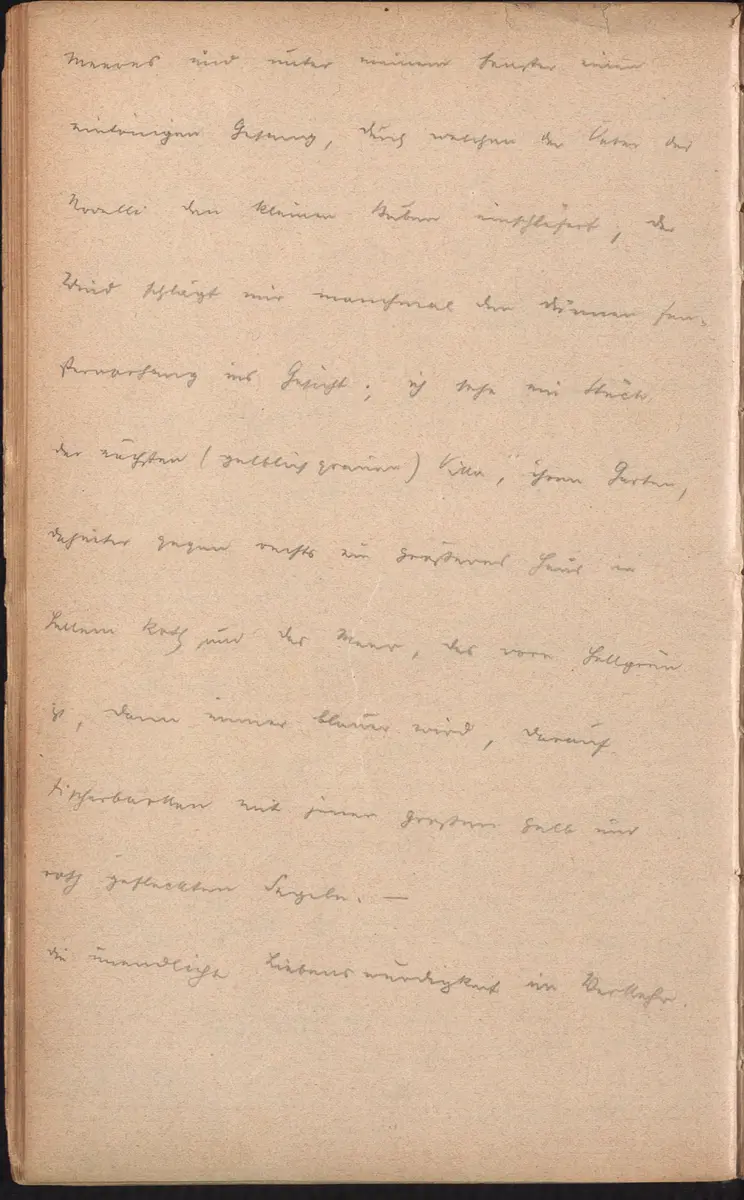 Meeres und unter meinem Fenster einen
eintönigen Gesang, durch welchen der Vater der
Novelli den kleinen Buben einschläfert, der
Wind schlägt mir manchmal den dünnen Fen-
stervorhang ins Gesicht; ich sehe ein Stück
der nächsten (gelblichgrauen) Villa, ihren Garten,
dahinter gegen rechts ein größeres Haus in
hellem Roth und das Meer, das vorn hellgrün
ist, dann immer blauer wird, darauf
Fischerbarken mit jenen großen gelb und
roth gefleckten Segeln. —
die unendliche Liebenswürdigkeit im Verkehr.